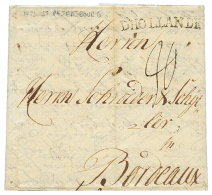 D'HOLLANDE
Herren
Herrn Schröder & Schy
ler
in
Bordeaux